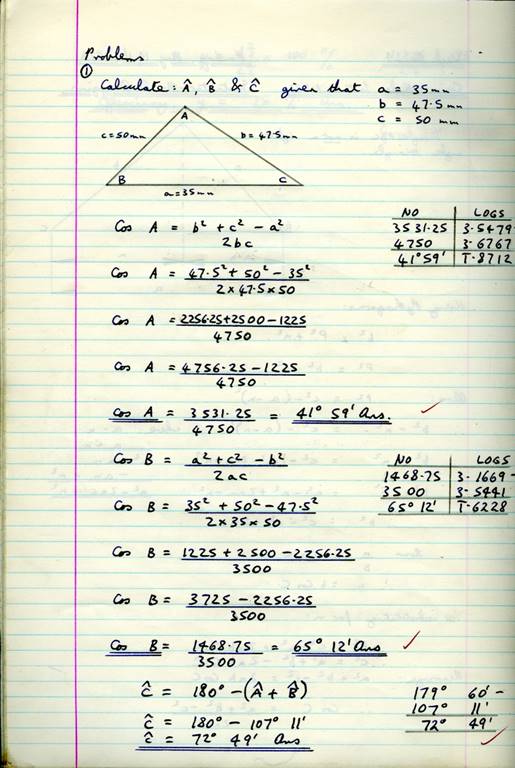 Problems
①
Calculate: Â, B̂ & Ĉ given that a = 35mm
b = 47.5mm
c = 50 mm
A
c=50mm
b=47.5mm
B
C
a=35mm
Cos A = b² + c² - a² / 2bc
NO | LOGS
3531.25 | 3.5479
4750 | 3.6767
41°59' | T.8712
Cos A = 47.5² + 50² - 35² / 2×47.5×50
Cos A = 2256.25+2500-1225 / 4750
Cos A = 4756.25-1225 / 4750
Cos A = 3531.25 / 4750 = 41° 59' Ans.
Cos B = a² + c² - b² / 2ac
NO | LOGS
1468.75 | 3.1669-
3500 | 3.5441
65° 12' | T.6228
Cos B = 35² + 50² - 47.5² / 2×35×50
Cos B = 1225 + 2500 - 2256.25 / 3500
Cos B = 3725 - 2256.25 / 3500
Cos B = 1468.75 / 3500 = 65° 12' Ans
Ĉ = 180° - (Â + B̂)
179° 60' -
107° 11'
72° 49'
Ĉ = 180° - 107° 11'
Ĉ = 72° 49' Ans